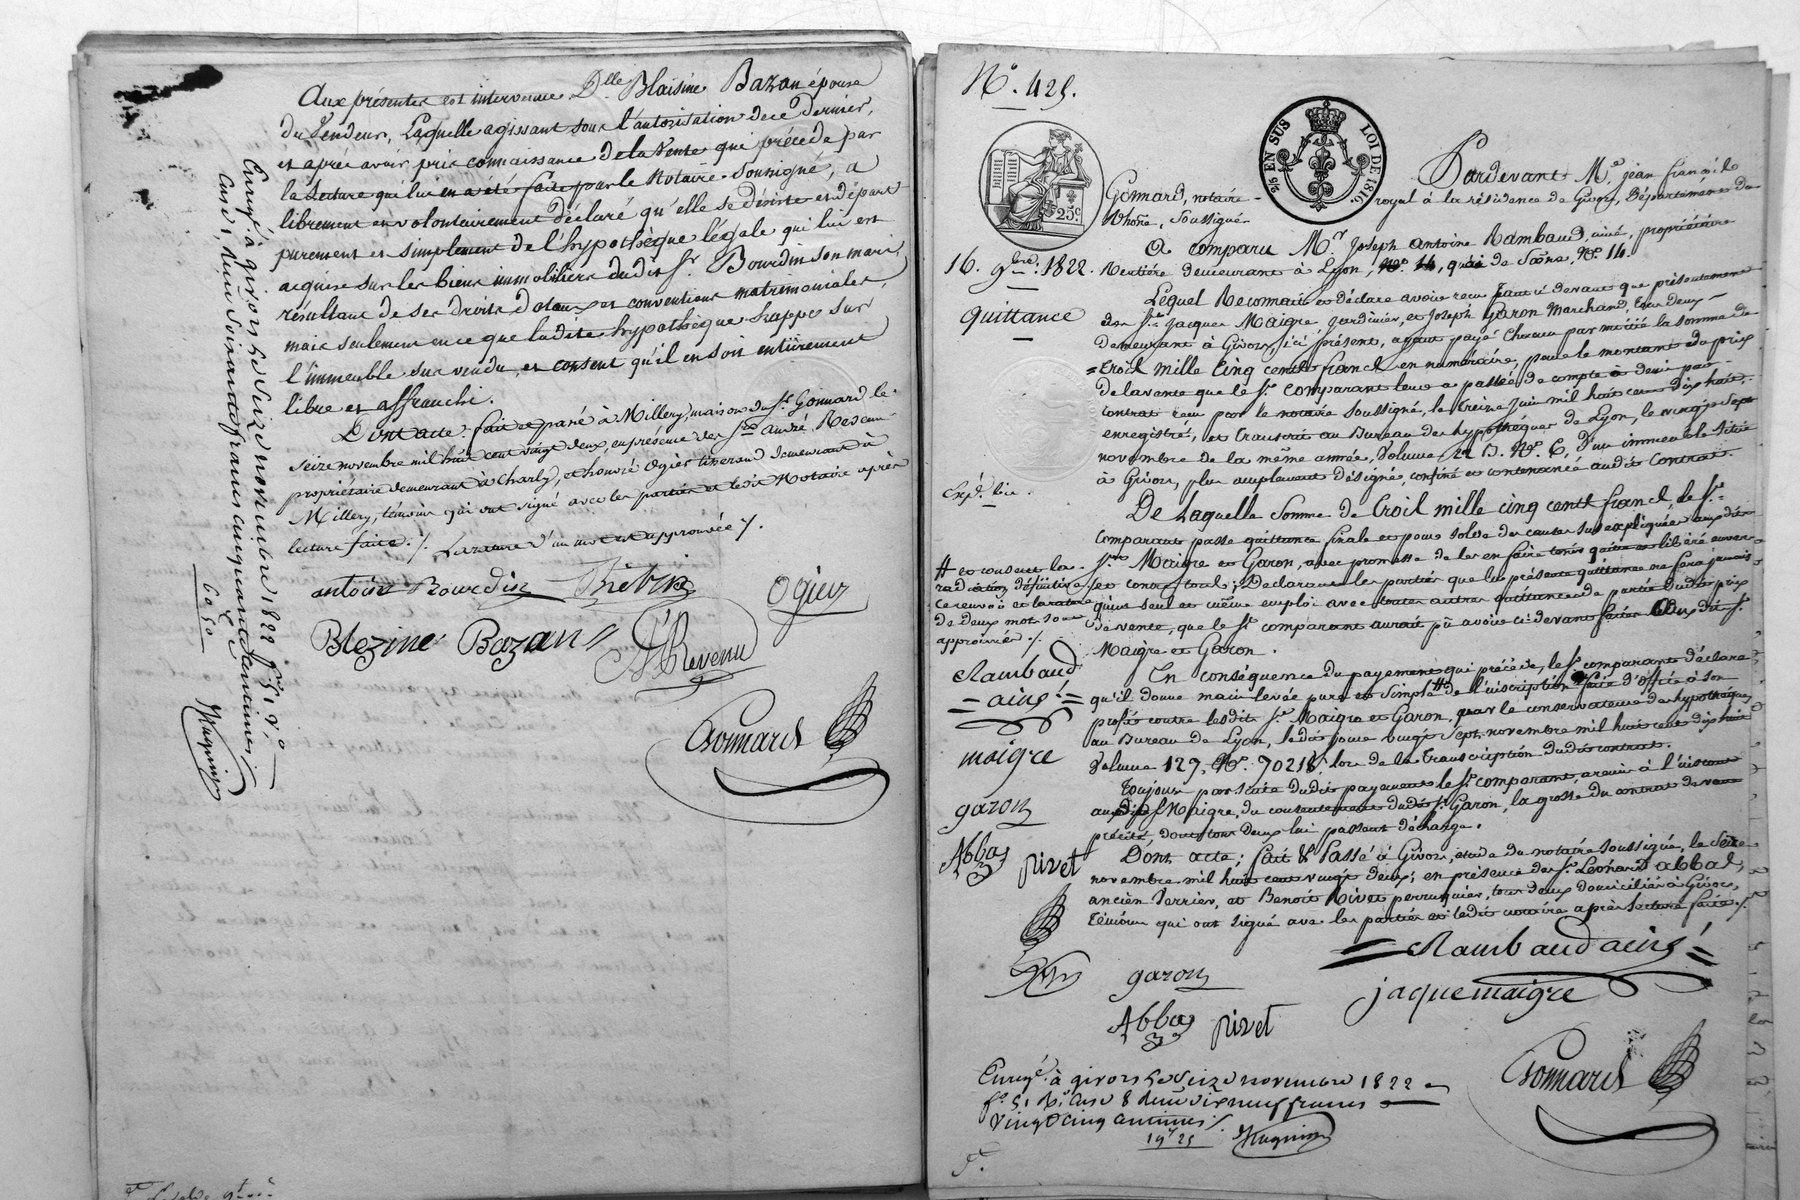 Aux présentes est intervenue D.lle Blaisine Bazan épouse
du Vendeur, Laquelle agissant sous l'autorisation de ce dernier,
et après avoir pris connaissance de la Vente qui précède par
la lecture qui lui en a été faite par le Notaire soussigné, a
librement et volontairement déclaré qu'elle se désiste et départ
purement et simplement de l'hypothèque légale qui lui est
acquise sur les biens immobiliers dudit S.r Bourdin son mari,
résultant de ses droits dotaux et conventions matrimoniales,
mais seulement en ce que ladite hypothèque frappe sur
l'immeuble sus vendu, et consent qu'il en soit entièrement
libre et affranchi.
Dont acte: fait et passé à Millery, maison du S.r Gonnard le
seize novembre mil huit cent vingt deux, en présence des S.rs André Revenu
propriétaire demeurant à Charly, et honoré Ogier tisserand demeurant à
Millery, témoins qui ont signé avec les parties et ledit Notaire après
lecture faite ./. La rature d'un mot est approuvée ./.
antoine Bourdin
Ogier
Blezine Bazan
Revenu
Gonnard
Enreg.é à givors le Seize novembre 1822 f.o 51 v.o
Case 1, Reçu Soixante francs cinquante centimes
60 50
Magnin
N.o 425.
2.es EN SUS LOI DE 1816.
25c
Pardevant M.e jean françois
Gonnard, notaire royal à la résidence de Givors, Département du
Rhône, Soussigné
A comparu M.r Joseph Antoine Rambaud, ainé, propriétaire
16. 9.bre 1822. Rentière demeurant à Lyon, N.o 14, quai de Saône, N.o 14.
quittance
Lequel Reconnait et déclare avoir reçu tant ci devant que présentement
des S.rs Jacques Maigre, Jardinier, et Joseph Garon Marchand, tous deux
demeurant à Givors, ici présents, ayant payé chacun par moitié la somme de
trois mille cinq cents francs en numéraire, pour le montant du prix
de la vente que le S.r comparant leur a passée de compte à demi par
contrat reçu par le notaire soussigné, le treize Juin mil huit cent dix huit,
enregistré, et transcrit au Bureau des hypothèques de Lyon, le vingt sept
novembre de la même année, Volume 12 D. N.o 6, d'un immeuble situé
à Givors, plus amplement désigné, confiné et contenancé audit Contrat.
Exp.é bis.
De Laquelle Somme de trois mille cinq cents francs, le S.r
comparant passe quittance finale et pour solde des causes sus expliquées auxdits
S.rs Maigre et Garon, avec promesse de les en faire tenir quittes et libérés envers
et contre tous; Déclarant les parties que les présente quittance ne fera jamais
qu'un seul et même emploi avec toutes autres quittances de partie dudit prix
de vente, que le S.r comparant aurait pu avoir ci-devant faites auxdits S.rs
Maigre et Garon.
# et consent la
radiation définitive
ce renvoi et la rature
de deux mots sont
approuvés ./.
Rambaud
ainé
maigre
garon
Abbas
pivet
En conséquence du payement qui précède, le S.r comparant déclare
qu'il donne main levée pure et simple # de l'inscription faite d'office à son
profit contre lesdits S.rs Maigre et Garon, par le conservateur des hypothèques
au Bureau de Lyon, ledit jour vingt sept novembre mil huit cent dix huit
Volume 127, N.o 70218, lors de la transcription dudit contrat.
Toujours par suite dudit payement le S.r comparant a remis à l'instant
audit S.r Maigre, du consentement dudit S.r Garon, la grosse du contrat de vente
précité, dont tous deux lui passent décharge.
Dont acte; fait & Passé à Givors, étude du notaire soussigné, le seize
novembre mil huit cent vingt deux; en présence des S.rs Léonard abbal,
ancien Verrier, et Benoit Rivet perruquier, tous deux domiciliés à Givors,
témoins qui ont signé avec les parties et ledit notaire après lecture faite ./.
Rambaud ainé
garon
jaque maigre
Abbas pivet
Gonnard
Enreg.é à givors le Seize novembre 1822
f.o 51 R.o Case 8 Reçu dix neuf francs
vingt cinq centimes ./.
19f 25
Magnin